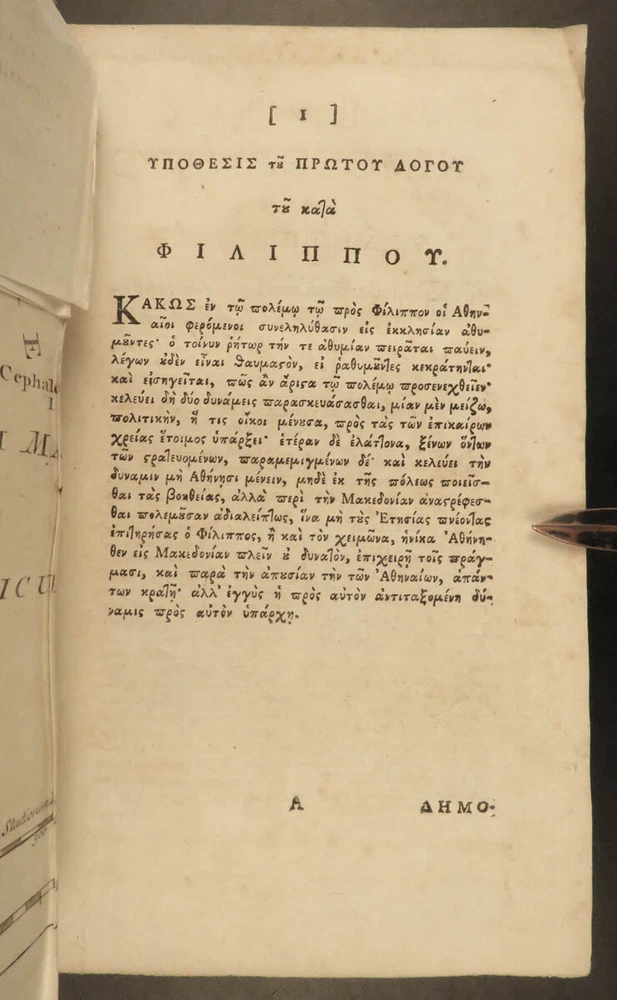 [ 1 ]
ΥΠΟΘΕΣΙΣ τȣ͂ ΠΡΩΤΟΥ ΛΟΓΟΥ
τȣ͂ καῖὰ
ΦΙΛΙΠΠΟΥ.
ΚΑΚΩΣ ἐν τῷ ϖολέμῳ τῷ ϖρὸς Φίλιππον οἱ Ἀθην-
αῖοι φερόμενοι συνεληλύθασιν εἰς ἐκκλησίαν ἀθυ-
μȣ͂ντες· ὁ τοίνυν ῥήτωρ τήν τε ἀθυμίαν ϖειρᾶται ϖαύειν,
λέγων ȣ̓δὲν εἶναι ϑαυμαϛὸν, εἰ ῥαθυμȣ͂ντες κεκράτηνται·
καὶ εἰσηγεῖται, ϖῶς ἂν ἄριϛα τῷ ϖολέμῳ ϖροσενεχθεῖεν·
κελεύει δὴ δύο δυνάμεις ϖαρασκευάσασθαι, μίαν μὲν μείζω,
ϖολιτικὴν, ἥ τις οἴκοι μένȣσα, ϖρὸς τὰς τῶν ἐπικαίρων
χρείας ἕτοιμος ὑπάρξει· ἑτέραν δὲ ἐλάτλονα, ξένων ὄντων
τῶν ϛρατευομένων, ϖαραμεμιγμένων δέ· καὶ κελεύει τὴν
δύναμιν μὴ Ἀθήνησι μένειν, μηδὲ ἐκ τῆς ϖόλεως ϖοιεῖσ-
θαι τὰς βοηθείας, ἀλλὰ ϖερὶ τὴν Μακεδονίαν ἀναϛρέφεσ-
θαι ϖολεμȣ͂σαν ἀδιαλείπτως, ἵνα μὴ τȣ̀ς Ἐτησίας ϖνέοντας
ἐπιτηρήσας ὁ Φίλιππος, ἢ καὶ τὸν χειμῶνα, ἡνίκα Ἀθήνη-
θεν εἰς Μακεδονίαν ϖλεῖν ȣ̓ δυνατὸν, ἐπιχειρῇ τοῖς ϖράγ-
μασι, καὶ ϖαρὰ τὴν ἀπȣσίαν τὴν τῶν Ἀθηναίων, ἁπάν-
των κρατῇ· ἀλλ' ἐγγὺς ἡ ϖρὸς αὐτὸν ἀντιταξομένη δύ-
ναμις ϖρὸς αὐτὸν ὑπάρχῃ.
Α ΔΗΜΟ-
Cephal